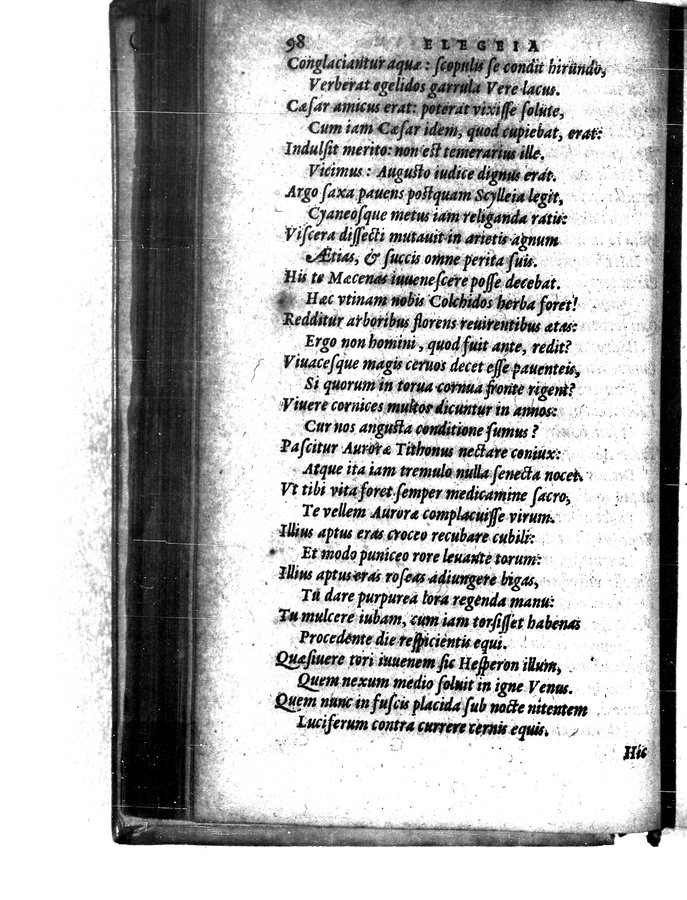 98 ELEGEIA
Conglaciantur aquæ : ſcopulis ſe condit hirundo,
Verberat egelidos garrula Vere lacus.
Cæſar amicus erat: poterat vixiſſe ſolute,
Cum iam Cæſar idem, quod cupiebat, erat:
Indulſit merito: non eſt temerarius ille,
Vicimus : Auguſto iudice dignus erat.
Argo ſaxa pauens poſtquam Scylleia legit,
Cyaneoſque metus iam religanda ratis:
Viſcera diſſecti mutauit in arietis agnum
Ætias, & ſuccis omne perita ſuis.
His te Mæcenas iuueneſcere poſſe decebat.
Hæc vtinam nobis Colchidos herba foret!
Redditur arboribus florens reuirentibus ætas:
Ergo non homini, quod fuit ante, redit?
Viuaceſque magis ceruos decet eſſe pauenteis,
Si quorum in torua cornua fronte rigent?
Viuere cornices multos dicuntur in annos:
Cur nos anguſta conditione ſumus ?
Paſcitur Auroræ Tithonus nectare coniux:
Atque ita iam tremulo nulla ſenecta nocet.
Vt tibi vita foret ſemper medicamine ſacro,
Te vellem Auroræ complacuiſſe virum.
Illius aptus eras croceo recubare cubili:
Et modo puniceo rore leuante torum:
Illius aptus eras roſeas adiungere bigas,
Tu dare purpurea lora regenda manu:
Tu mulcere iubam, cum iam torſiſſet habenas
Procedente die reſpicientis equi.
Quæſiuere tori iuuenem ſic Heſperon illum,
Quem nexum medio ſoluit in igne Venus.
Quem nunc in fuſcis placida ſub nocte nitentem
Luciferum contra currere cernis equis.
Hic